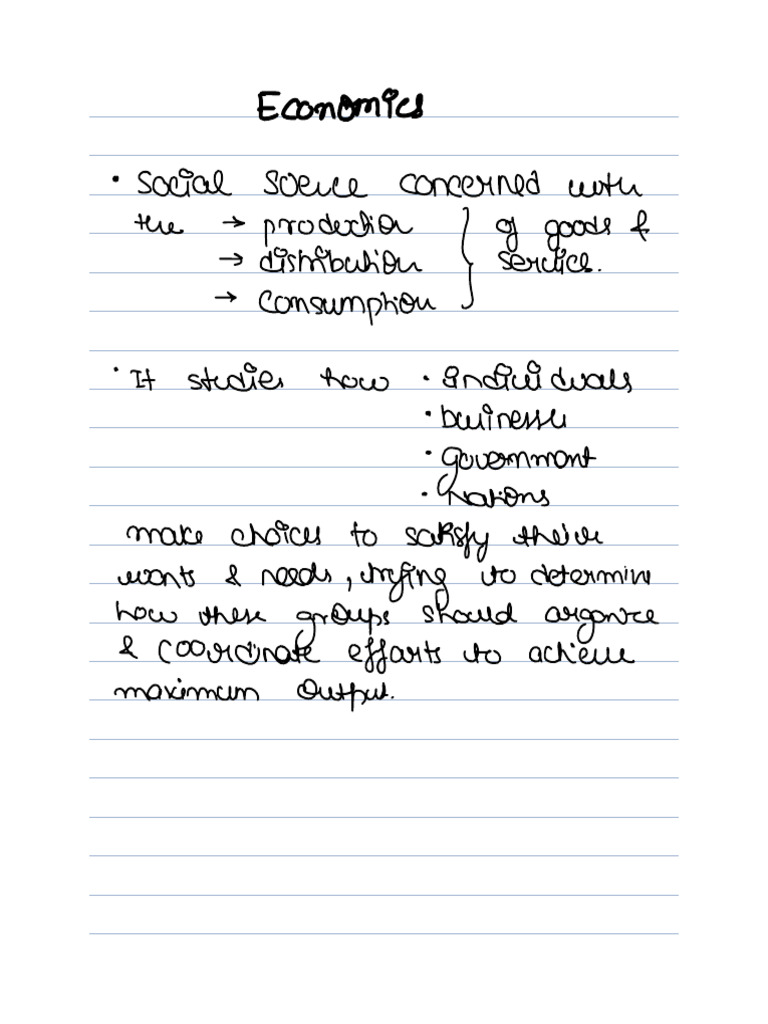 Economics
• Social Science concerned with
the → production } of goods &
→ distribution } service.
→ consumption }
• It studies how • Individuals
• business
• government
• Nations
make choices to satisfy their
wants & needs, trying to determine
how these groups should organize
& coordinate efforts to achieve
maximum output.